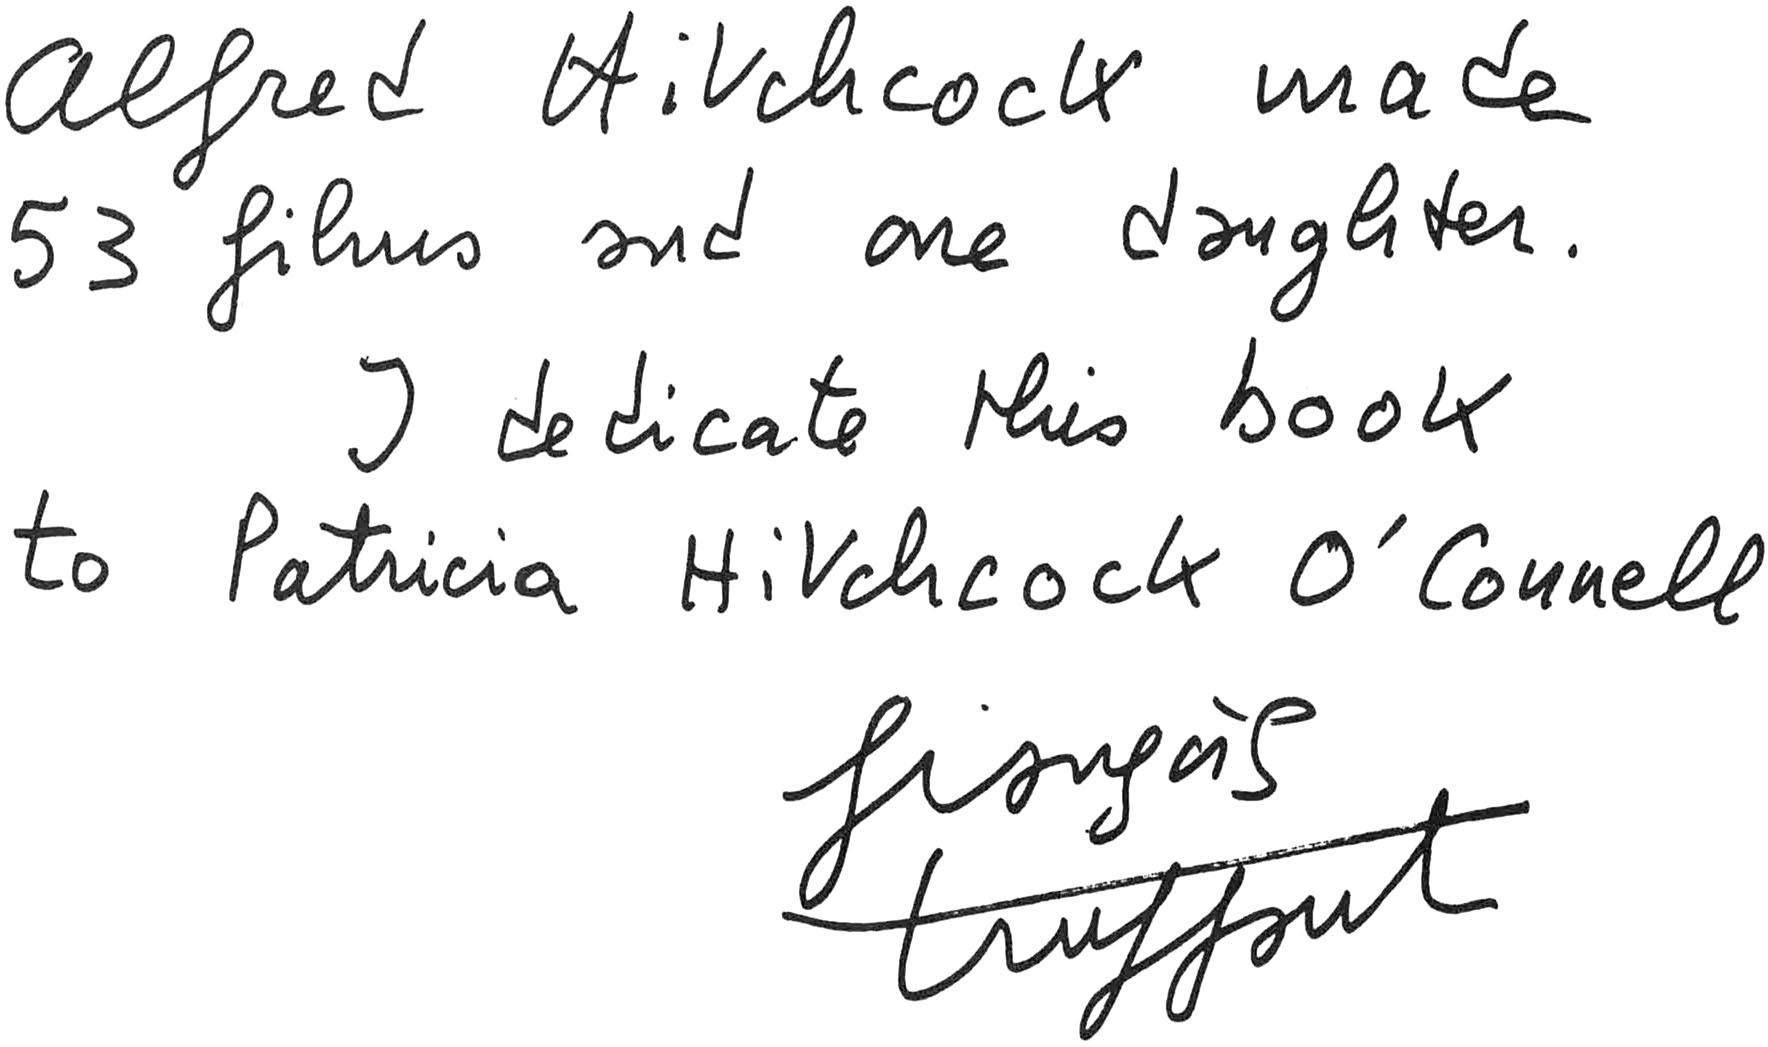 Alfred Hitchcock made
53 films and one daughter.
I dedicate this book
to Patricia Hitchcock O'Connell
françois
truffaut